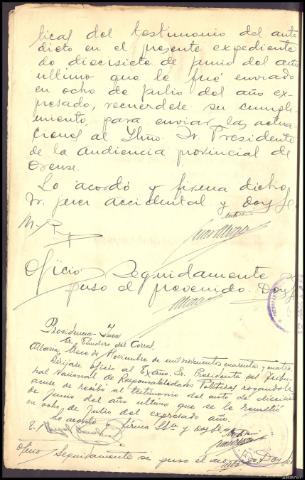 licas del testimonio del auto
dicto en el presente expediente
do diecisiete de junio del año
ultimo que le fué enviado
en ocho de julio del año ex-
presado, recuérdese su cumpli-
miento para enviar las actua
ciones al Iltmo. Sr. Presidente
de la audiencia provincial de
Orense.
Lo acordó y firma dicho
Sr. juez accidental y doy fe
Oficio Seguidamente
puso el prevenido. Doy fe
Providencia Juez
Sr. Piñeiro del Corral
Allariz, de Noviembre de mil novecientos cuarenta y cuatro
Diríjase oficio al Excmo. Sr. Presidente del Tribu-
nal Nacional de Responsabilidades Políticas, rogando
acuse de recibo al testimonio del auto de diecisiete
de junio del año ultimo que se le remitió
en ocho de julio del expresado año.
Lo acordó y firma SSª. y doy fe.
Oficio Seguidamente se puso el Doy fe